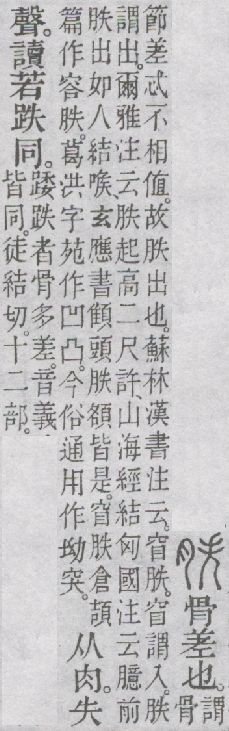 胅骨差也。謂骨
節差忒不相値。故胅出也。蘇林漢書注云。窅胅。窅謂入。胅
謂出。爾雅注云胅起高二尺許、山海經結匈國注云臆前
胅出如人結喉、玄應書顀頭胅額皆是。窅胅倉頡
篇作容胅。葛洪字苑作凹凸。今俗通用作坳突。从肉。失
聲。讀若跌同。踒跌者骨多差。音義
皆同。徒結切。十二部。